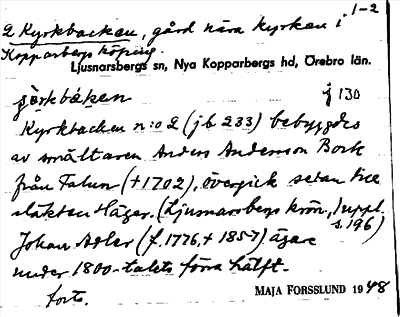 1-2
2 Kyrkbacken, gård nära kyrkan i
Kopparbergs köping.
Ljusnarsbergs sn, Nya Kopparbergs hd, Örebro län.
j 130
Kyrkbacken n:o 2 (jb 233) bebyggdes
av smältaren Anders Anderson Bork
från Falun (†1702), övergick sedan till
släkten Häger. (Ljusnarsbergs krön, 1 uppl.
s. 196)
Johan Adler (f. 1776, † 1857) ägare
under 1800-talets förra hälft.
forts.
MAJA FORSSLUND 1948